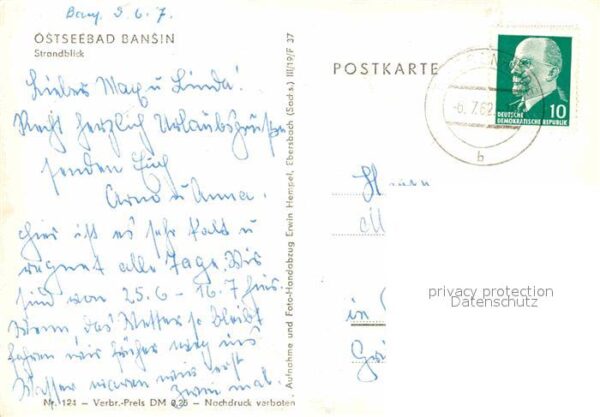 OSTSEEBAD BANSIN
Strandblick
Liebes Max u Linda!
Recht herzlich Urlaubsgrüße
senden Euch
Arno u Anna.
hier ist es sehr kalt u
regnet alle Tage. Wir
sind von 25.6 - 16.7 hier.
Wenn das Wetter so bleibt
fahren wir früher weg ins
Wasser waren wir erst
zwei mal.
Nr. 121 - Verbr.-Preis DM 0,25 - Nachdruck verboten
Aufnahme und Foto-Handabzug Erwin Hempel, Ebersbach (Sachs.) III/19/F 37
POSTKARTE
-6. 7. 62
b
10
DEUTSCHE
DEMOKRATISCHE REPUBLIK
in
privacy protection
Datenschutz